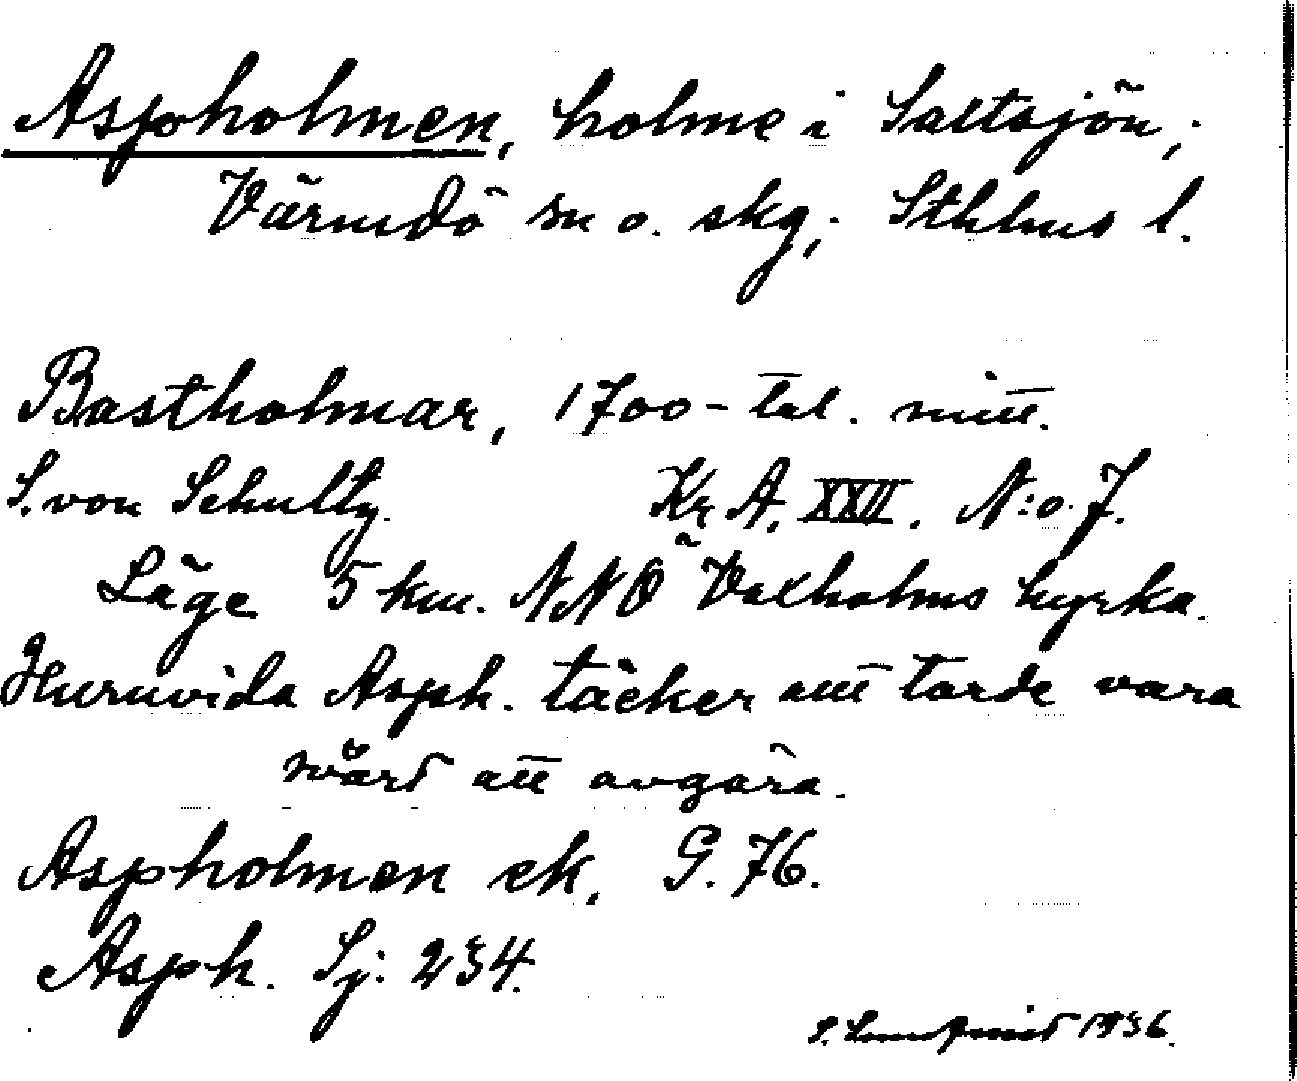 Aspholmen, holme i Saltsjön,;
Värmdö sn o. skg,; Sthlms l.
Bastholmar, 1700-tal. mitt.
S. von Schultz. Kr A. XXII. N:o. 7.
Läge 5 km. NNÖ Vaxholms kyrka.
Huruvida Asph. täcker allt torde vara
svårt att avgöra.
Aspholmen ek. G. 76.
Asph. Sj: 234.
S. 1936.